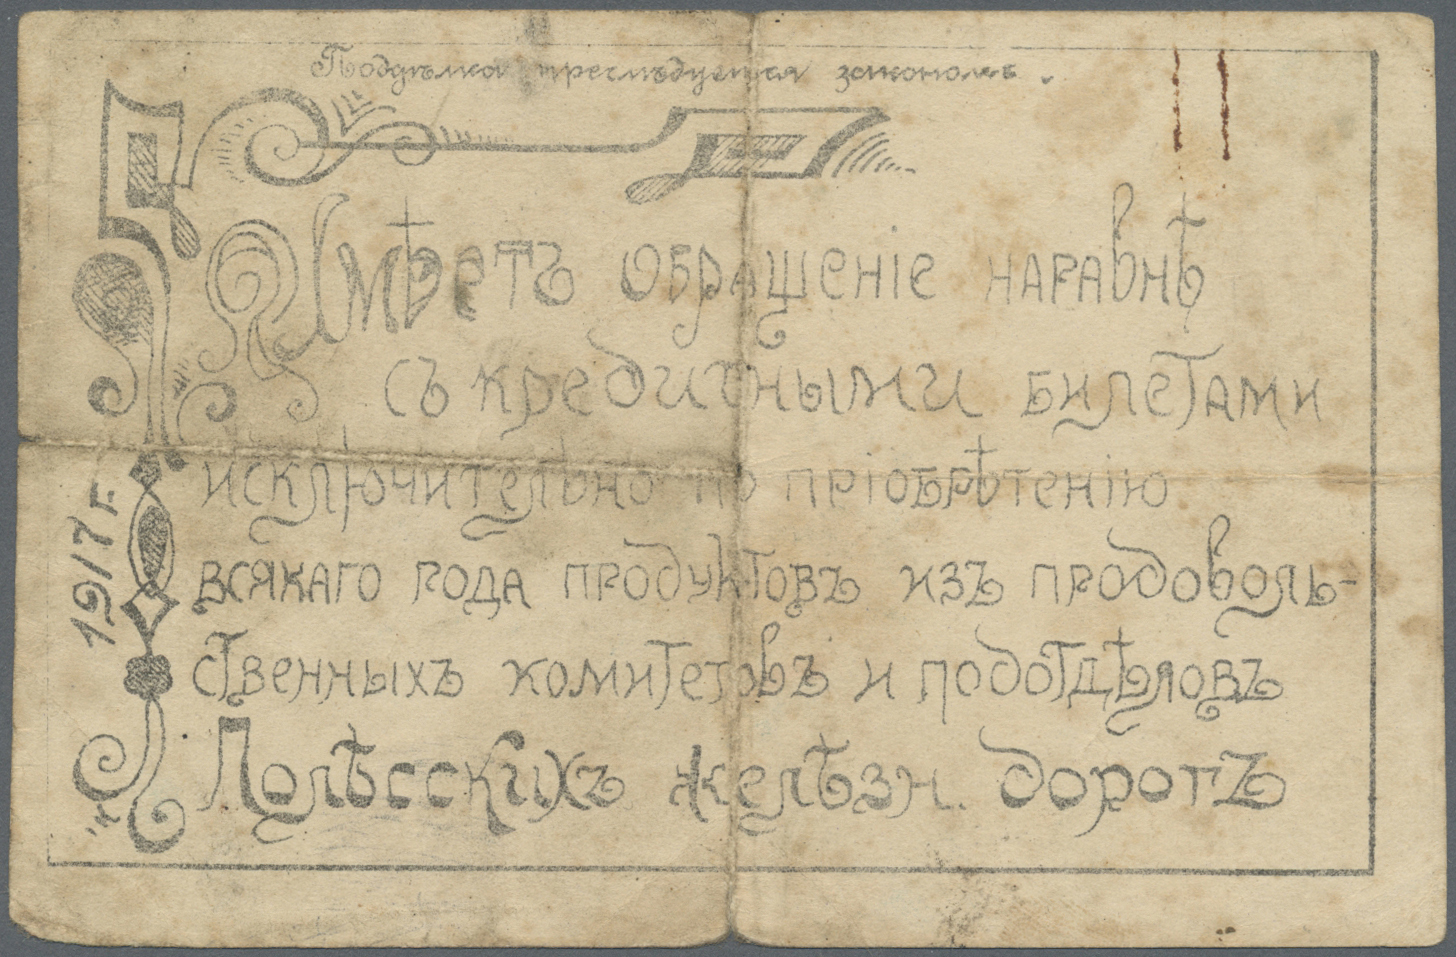 Поддѣлка преслѣдуется закономъ.
Имѣетъ обращеніе наравнѣ
съ кредитными билетами
исключительно по пріобрѣтенію
всякаго рода продуктовъ изъ продоволь-
ственныхъ комитетовъ и подотдѣловъ
Полѣсскихъ желѣзн. дорогъ
1917 г.